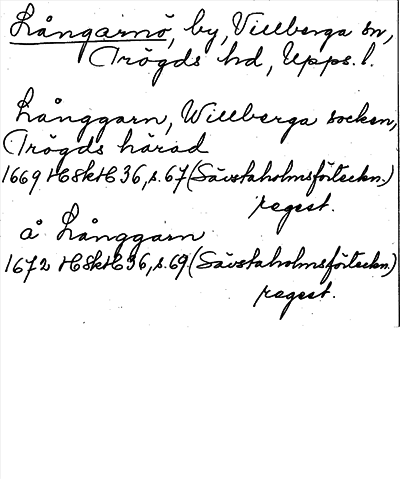 Långarnö, by, Villberga sn,
Trögds hd, Upps. l.
Långgarn, Willberga socken,
Trögds härad
1669 HSkH 36, s. 67 (Sävstaholmsförteckn.)
regest.
å Långgarn
1672 HSkH 36, s. 69 (Sävstaholmsförteckn.)
regest.